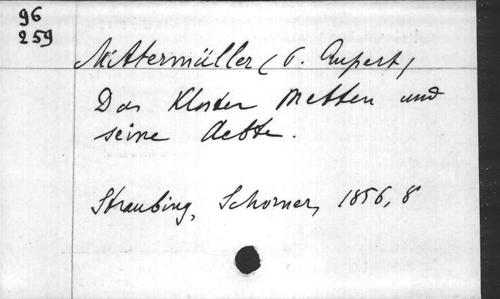 96
259
Mittermüller (P. Rupert)
Das Kloster Metten und
seine Aebte.
Straubing, Schorner, 1856, 8°